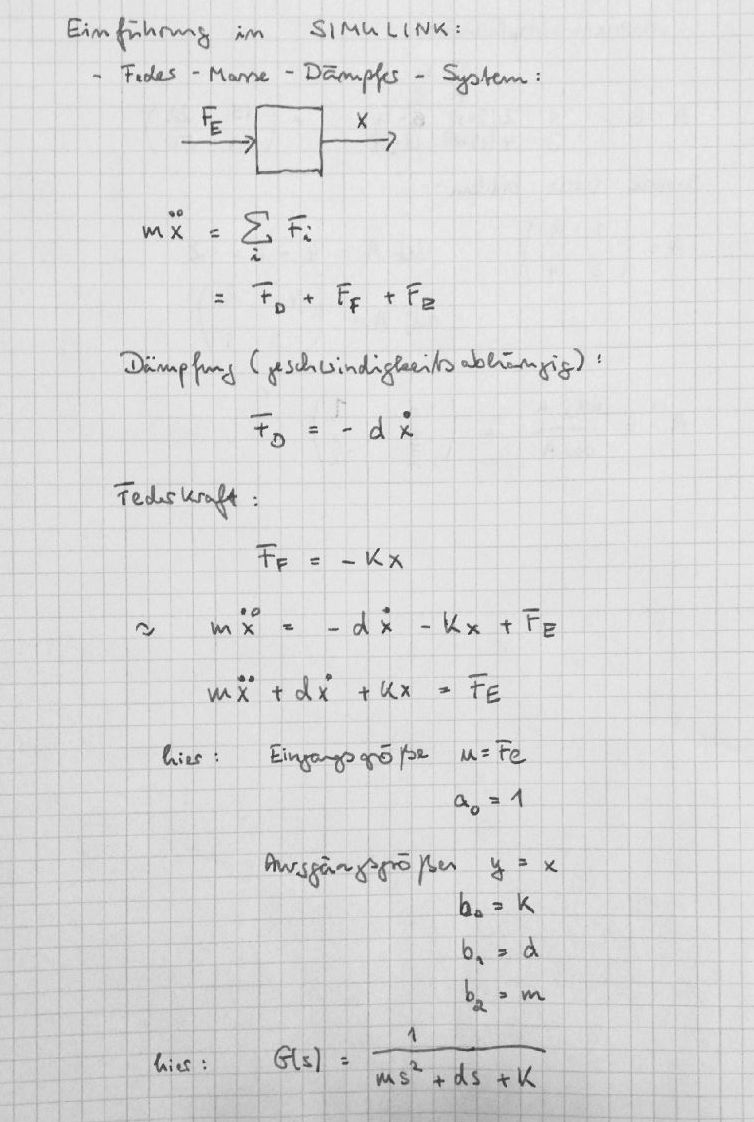 Einführung in SIMULINK:
- Feder - Masse - Dämpfer - System:
F_E x
m ẍ = ∑_i F_i
= F_D + F_F + F_E
Dämpfung (geschwindigkeitsabhängig):
F_D = - d ẋ
Federkraft:
F_F = - K x
~ m ẍ = - d ẋ - K x + F_E
m ẍ + d ẋ + K x = F_E
hier: Eingangsgröße u = F_e
a_0 = 1
Ausgängsgrößen y = x
b_0 = K
b_1 = d
b_2 = m
hier: G(s) = 1 / (ms² + ds + K)